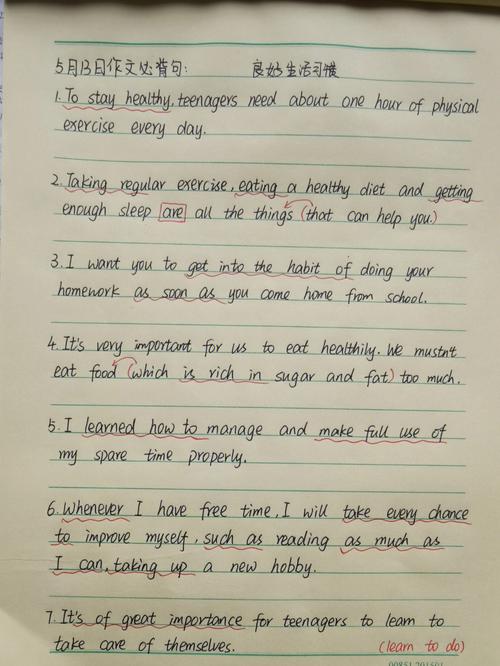 5月13日作文必背句: 良好生活习惯
1. To stay healthy, teenagers need about one hour of physical
exercise every day.
2. Taking regular exercise, eating a healthy diet and getting
enough sleep are all the things (that can help you.)
3. I want you to get into the habit of doing your
homework as soon as you come home from school.
4. It's very important for us to eat healthily. We mustn't
eat food (which is rich in sugar and fat) too much.
5. I learned how to manage and make full use of
my spare time properly.
6. Whenever I have free time, I will take every chance
to improve myself, such as reading as much as
I can, taking up a new hobby.
7. It's of great importance for teenagers to learn to
take care of themselves. (learn to do)